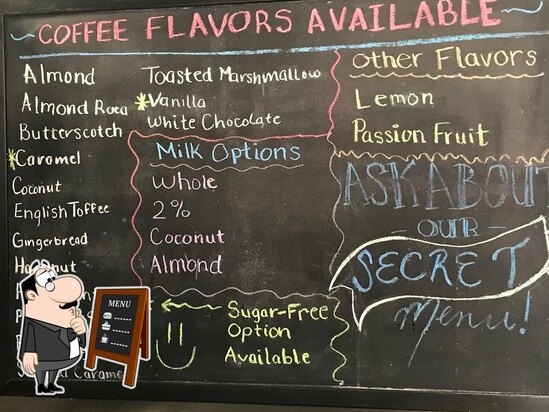 COFFEE FLAVORS AVAILABLE
Almond
Almond Roca
Butterscotch
*Caramel
Coconut
English Toffee
Gingerbread
Toasted Marshmallow
*Vanilla
White Chocolate
Milk Options
Whole
2%
Coconut
Almond
Sugar-Free
Option
Available
other Flavors
Lemon
Passion Fruit
ASK ABOUT
OUR
SECRET
menu!
MENU
Caramel